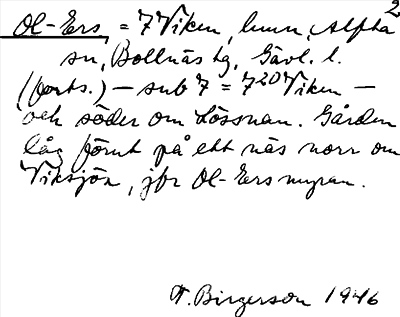 2
Ol-Ers, = 7 Viken, hmn, Alfta
sn, Bollnäs tg, Gävl. l.
(forts.) — sub 7 = 7²⁰ Viken —
och söder om Lössnan. Gården
låg förut på ett näs norr om
Viksjön, jfr Ol-Ersmyran.
F. Birgerson 1946